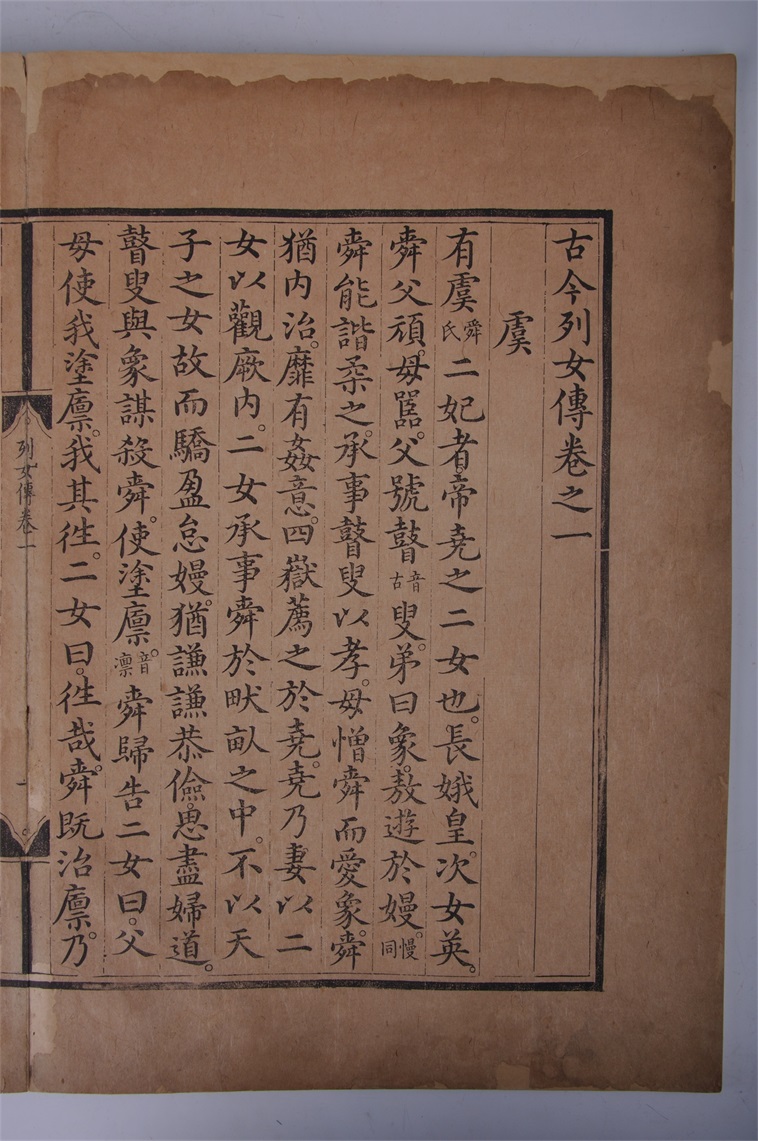 古今列女傳卷之一
虞
有虞舜氏二妃者帝堯之二女也。長娥皇。次女英。
舜父頑。母嚚。父號瞽音古叟。弟曰象。敖遊於嫚。慢同
舜能諧柔之。承事瞽叟以孝。母憎舜而愛象。舜
猶內治。靡有姦意。四嶽薦之於堯。堯乃妻以二
女以觀厥內。二女承事舜於畎畝之中。不以天
子之女故而驕盈怠嫚。猶謙謙恭儉。思盡婦道。
瞽叟與象謀殺舜。使塗廩。音凛舜歸告二女曰。父
母使我塗廩。我其徃。二女曰。徃哉。舜既治廩。乃
列女傳卷一
一